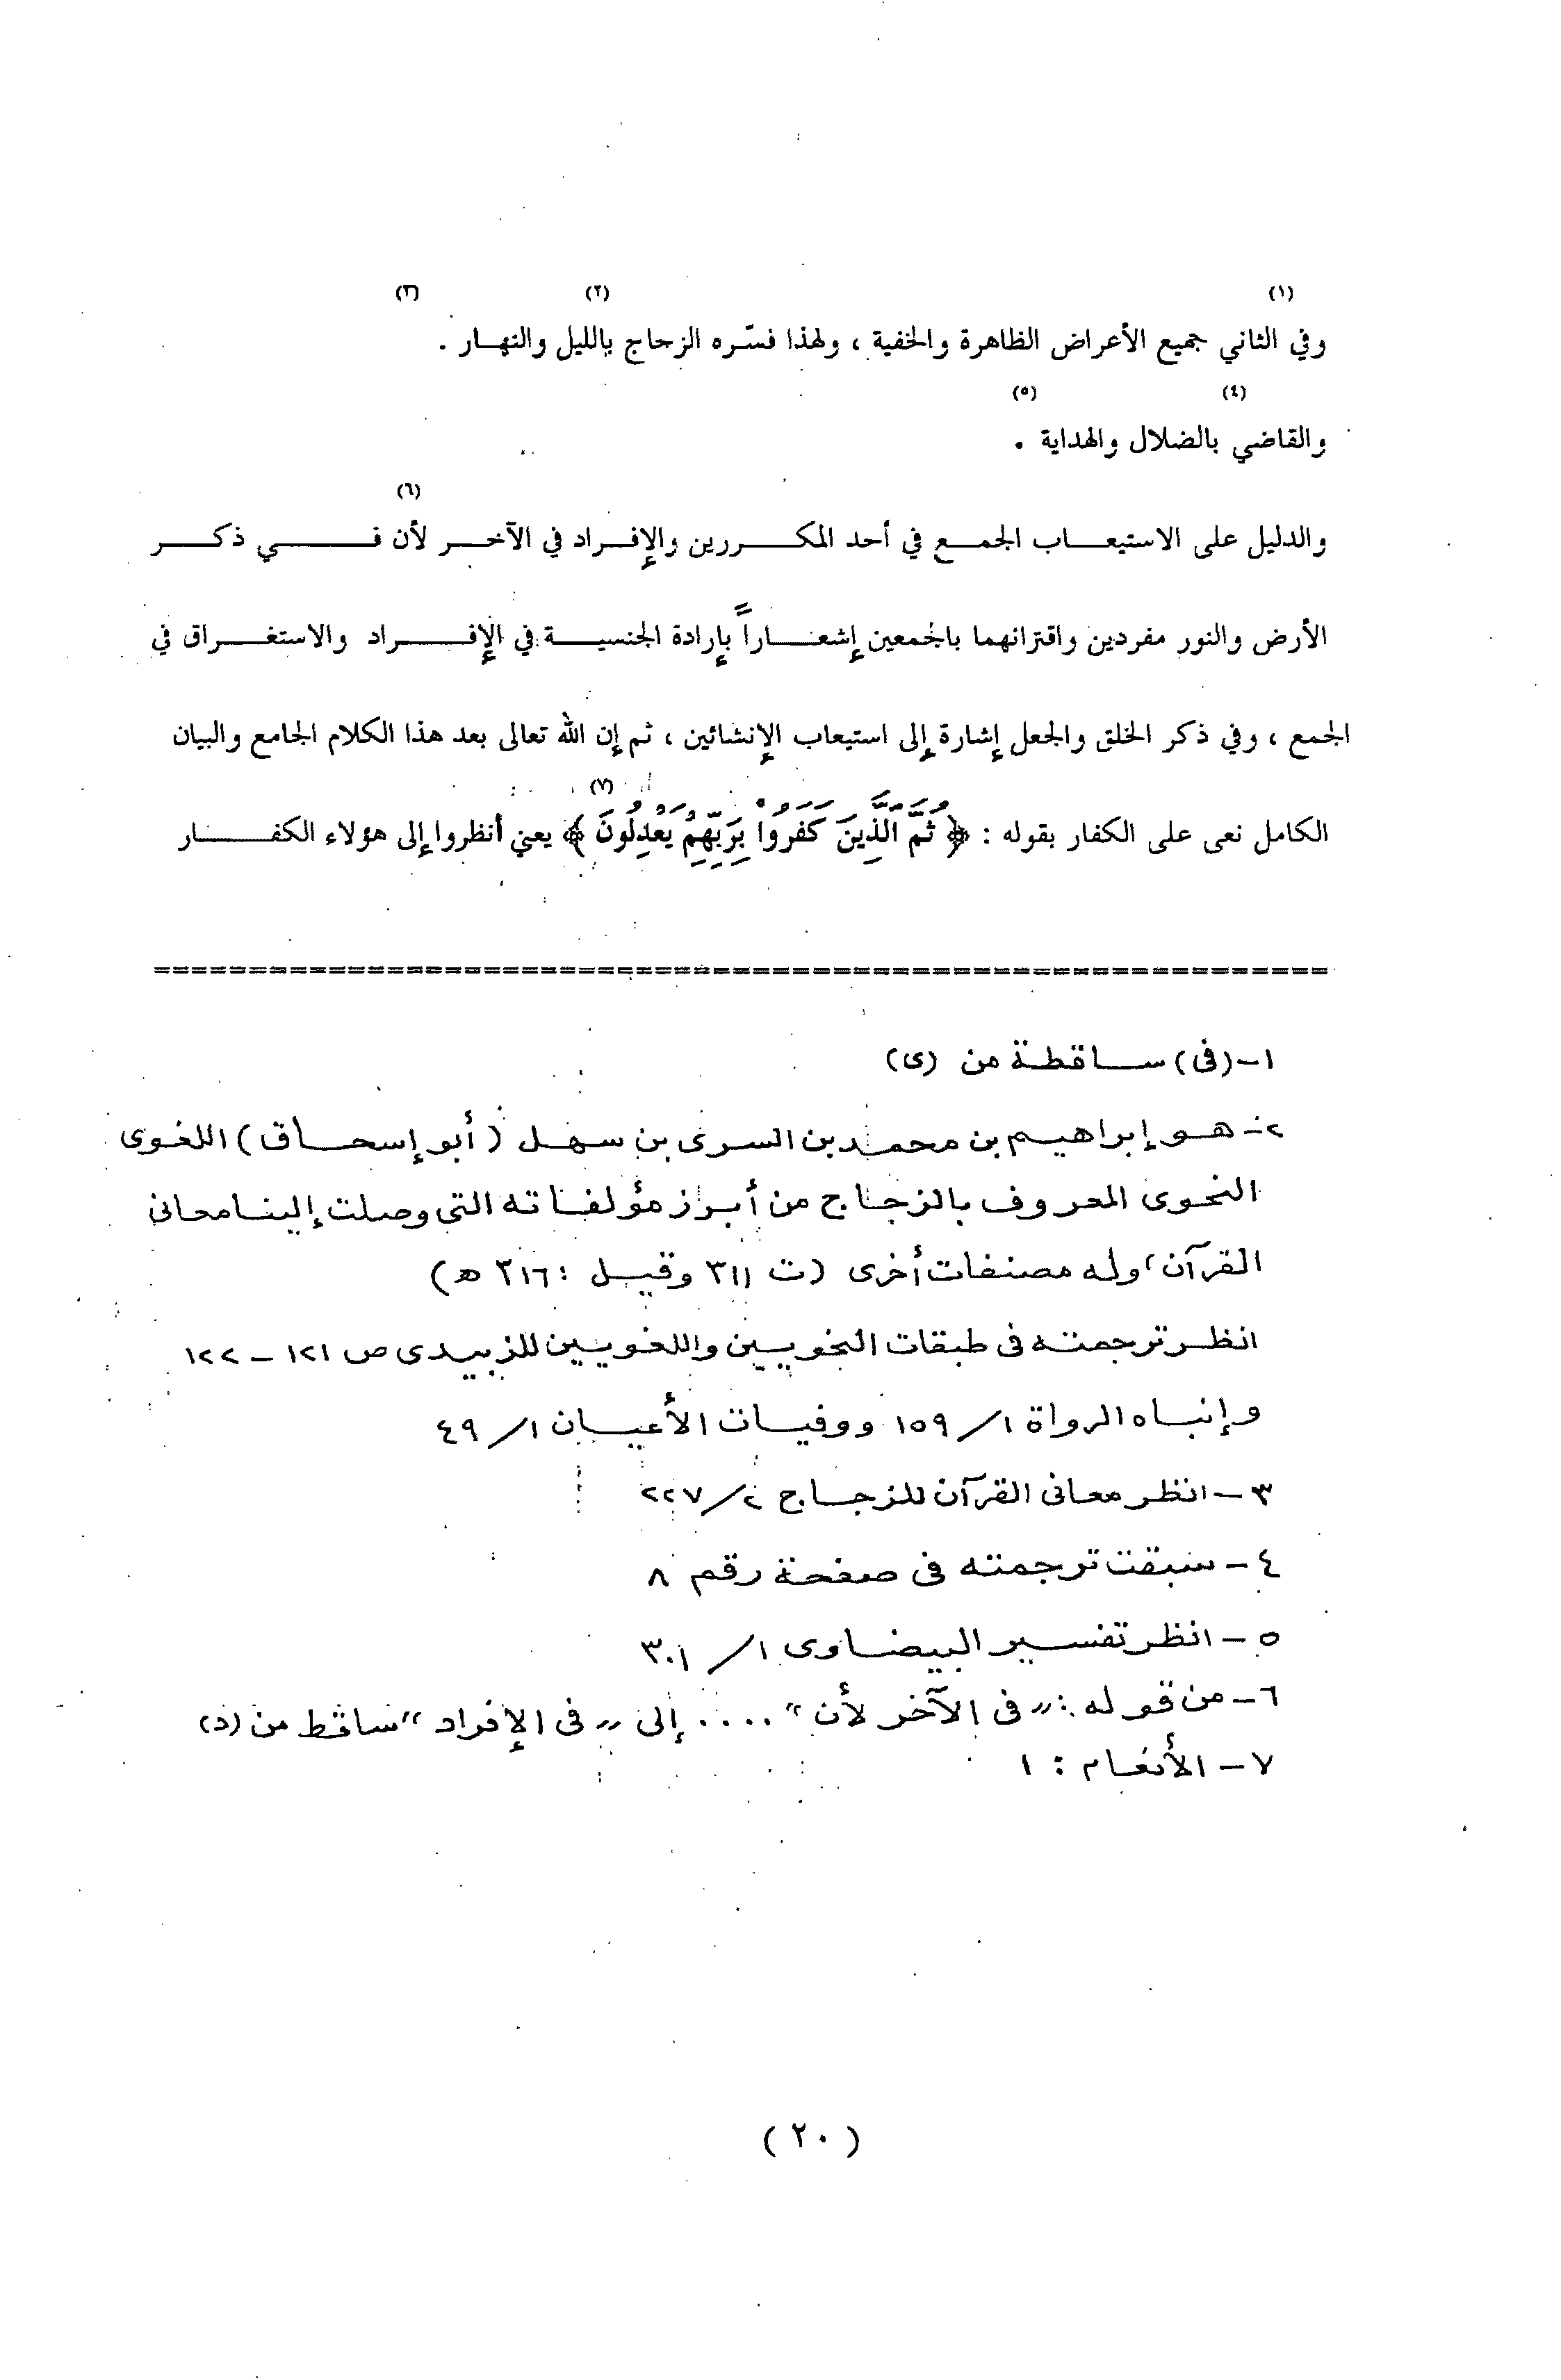 (١) (٢) (٣)
وفي الثاني جميع الأعراض الظاهرة والخفية ، ولهذا فسّره الزجاج بالليل والنهـار .
(٤) (٥)
والقاضي بالضلال والهداية .
(٦)
والدليل على الاستيعـاب الجمـع في أحد المكـررين والإفـراد في الآخـر لأن فـي ذكـر
الأرض والنور مفردين واقترانهما بالجمعين إشعـاراً بإرادة الجنسيـة في الإفـراد والاستغـراق في
الجمع ، وفي ذكر الخلق والجعل إشارة إلى استيعاب الإنشائين ، ثم إن الله تعالى بعد هذا الكلام الجامع والبيان
(٧)
الكامل نعى على الكفار بقوله : ﴿ ثُمَّ الَّذِينَ كَفَرُوا بِرَبِّهِمْ يَعْدِلُونَ ﴾ يعني أنظروا إلى هؤلاء الكفـار
١-(فى) ساقطة من (ى)
٢- هو إبراهيم بن محمد بن السرى بن سهل (أبو إسحاق) اللغوى
النحوى المعروف بالزجاج من أبرز مؤلفاته التى وصلت إلينا معانى
القرآن، وله مصنفات أخرى (ت ٣١١ وقيل : ٣١٦ ه)
انظر ترجمته فى طبقات النحويين واللغويين للزبيدى ص ١٢١ - ١٢٢
وإنباه الرواة ١/ ١٥٩ ووفيات الأعيان ١/ ٤٩
٣- انظر معانى القرآن للزجاج ٢/ ٢٢٧
٤- سبقت ترجمته فى صفحة رقم ٨
٥- انظر تفسير البيضاوى ١/ ٣٠١
٦- من قوله : " فى الآخر لأن " .... إلى " فى الإفراد " ساقط من (د)
٧- الأنعام : ١
( ٢٠ )